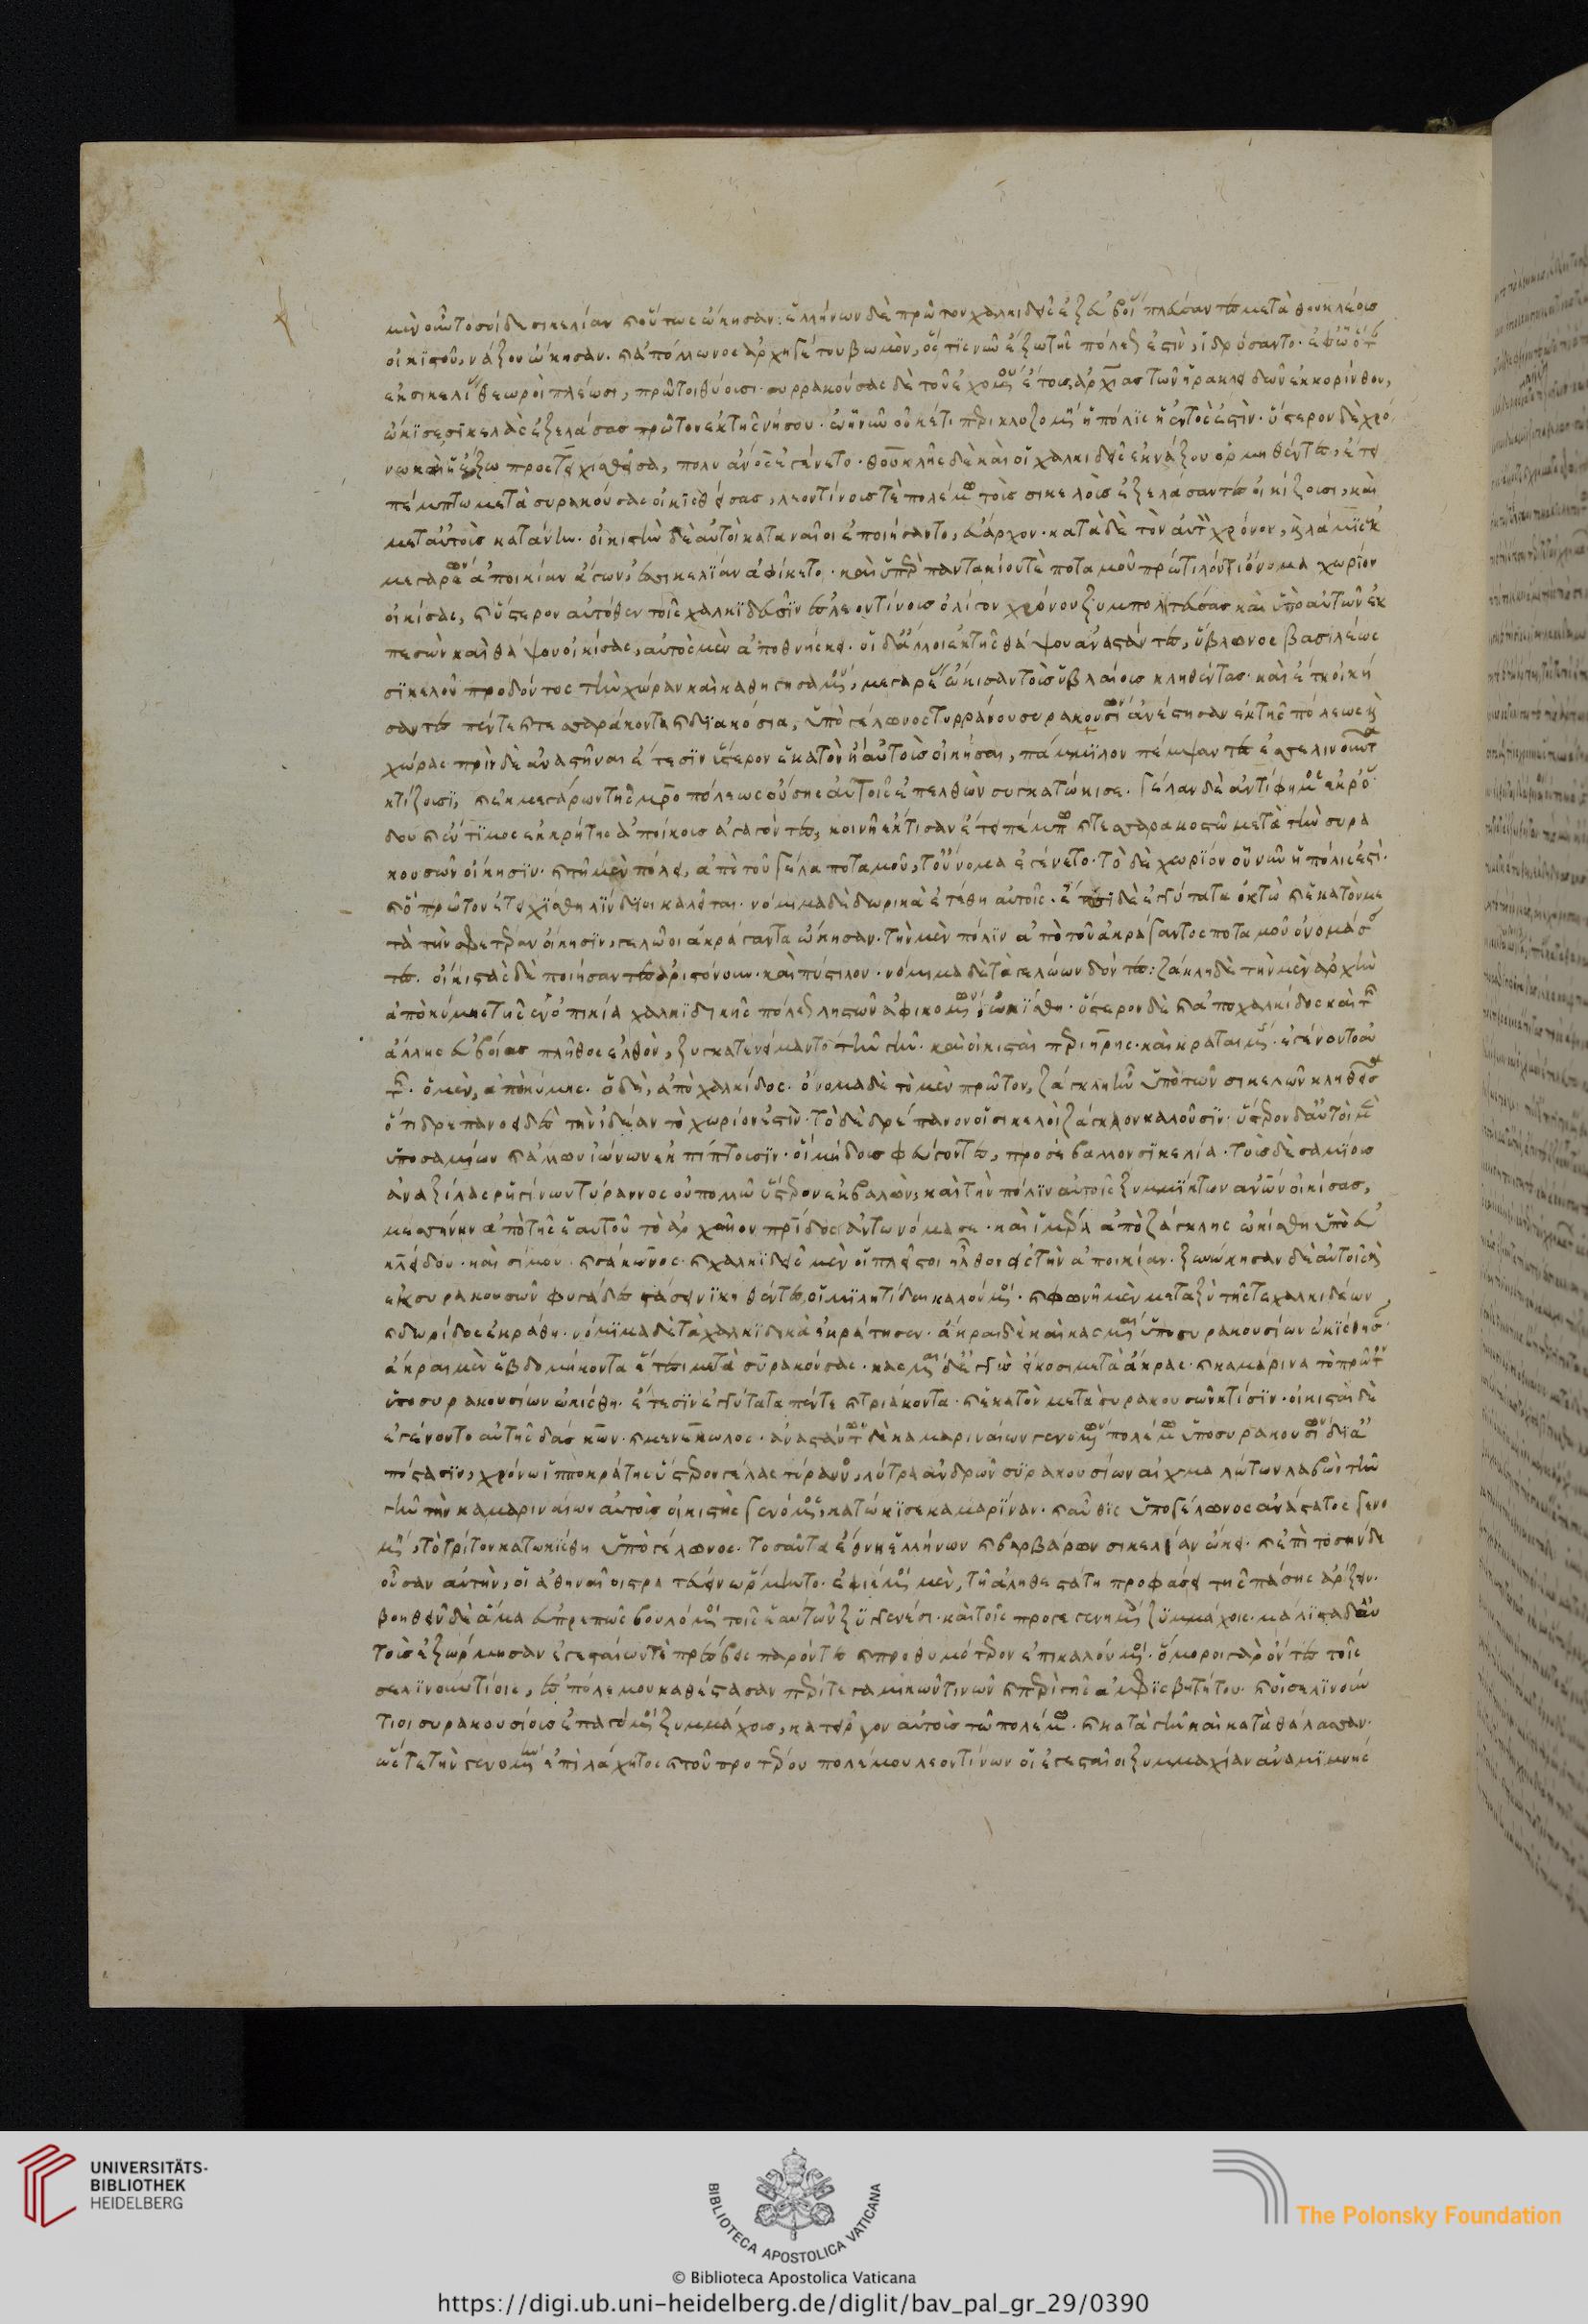 μὲν οὖν τοσοίδε σικελίαν καὶ οὕτως ὤκησαν: ἑλλήνων δὲ πρῶτον χαλκιδεῖς ἐξ εὐβοίας πλεύσαντες μετὰ θουκλέους
οἰκιστοῦ, νάξον ὤκησαν. καὶ ἀπόλλωνος ἀρχηγέτου βωμὸν, ὅστις νῦν ἔξω τῆς πόλεως ἐστὶν, ἱδρύσαντο. ἐφ' ᾧ ὅταν
ἐκ σικελίας θεωροὶ πλέωσι, πρῶτοι θύουσι. συρρακούσας δὲ τοῦ ἐχομένου ἔτους, ἀρχίας τῶν ἡρακλειδῶν ἐκ κορίνθου,
ὤκισε σικελοὺς ἐξελάσας πρῶτον ἐκ τῆς νήσου. ἐν ᾗ νῦν οὐκέτι περικλυζομένη ἡ πόλις ἡ ἐντός ἐστιν. ὕστερον δὲ χρό
νω καὶ ἡ ἔξω προστειχισθεῖσα, πολυάνθρωπος ἐγένετο. θουκλῆς δὲ καὶ οἱ χαλκιδεῖς ἐκ νάξου ὁρμηθέντες, ἔτει
πέμπτω μετὰ συρακούσας οἰκισθείσας, λεοντίνους τὲ πολέμω τοὺς σικελοὺς ἐξελάσαντες οἰκίζουσι, καὶ
μετ' αὐτοὺς κατάνην. οἰκιστὴν δὲ αὐτοὶ καταναῖοι ἐποιήσαντο, εὔαρχον. κατὰ δὲ τὸν αὐτὸν χρόνον, καὶ λάμις ἐκ
μεγάρων ἀποικίαν ἄγων, ἐς σικελίαν ἀφίκετο. καὶ ὑπὲρ παντακίου τὲ ποταμοῦ πρώτιλόν τι ὄνομα χωρίον
οἰκίσας, καὶ ὕστερον αὐτόθεν τοῖς χαλκιδεῦσιν ἐς λεοντίνους ὀλίγον χρόνον ξυμπολιτεύσας καὶ ὑπὸ αὐτῶν ἐκ
πεσὼν καὶ θάψον οἰκίσας, αὐτὸς μὲν ἀποθνήσκει. οἱ δ' ἄλλοι ἐκ τῆς θάψου ἀναστάντες, ὕβλωνος βασιλέως
σικελοῦ προδόντος τὴν χώραν καὶ καθηγησαμένου, μεγαρέας ὤκισαν τοὺς ὑβλαίους κληθέντας. καὶ ἔτη οἰκή
σαντες πέντε καὶ τεσσαράκοντα καὶ διακόσια, ὑπὸ γέλωνος τυρράνου συρακουσίων ἀνέστησαν ἐκ τῆς πόλεως καὶ
χώρας πρὶν δὲ ἀναστῆναι ἔτεσιν ὕστερον ἑκατὸν ἢ αὐτοὺς οἰκῆσαι, πάμμιλον πέμψαντες ἐς σελινοῦντα
κτίζουσι, καὶ ἐκ μεγάρων τῆς μητροπόλεως οὔσης αὐτοῖς ἐπελθὼν συγκατώκισε. γέλαν δὲ ἀντίφημος ἐκ ῥό
δου καὶ ἔντιμος ἐκ κρήτης ἀποίκους ἀγαγόντες, κοινῇ ἔκτισαν ἔτει πέμπτω καὶ τεσσαρακοστῶ μετὰ τὴν συρα
κουσῶν οἴκησιν. καὶ τῇ μὲν πόλει, ἀπὸ τοῦ γέλα ποταμοῦ, τοὔνομα ἐγένετο. τὸ δὲ χωρίον οὗ νῦν ἡ πόλις ἐστὶ.
καὶ ὃ πρῶτον ἐτειχίσθη λίνδιοι καλεῖται. νόμιμα δὲ δωρικὰ ἐτέθη αὐτοῖς. ἔτεσι δὲ ἐγγύτατα ὀκτὼ καὶ ἑκατὸν με
τὰ τὴν σφετέραν οἴκησιν, γελῶοι ἀκράγαντα ὤκησαν. τὴν μὲν πόλιν ἀπὸ τοῦ ἀκράγαντος ποταμοῦ ὀνομάσαν
τες. οἰκιστὰς δὲ ποιήσαντες ἀριστόνουν. καὶ πύστιλον. νόμιμα δὲ τὰ γελώων δόντες: ζάκλη δὲ τὴν μὲν ἀρχὴν
ἀπὸ κύμης τῆς ἐν ὀπικία χαλκιδικῆς πόλεως ληστῶν ἀφικομένων, ὠκίσθη. ὕστερον δὲ καὶ ἀπὸ χαλκίδος καὶ τῆς
ἄλλης εὐβοίας πλῆθος ἐλθὸν, ξυγκατενείμαντο τὴν γῆν. καὶ οἰκισταὶ περιήρης. καὶ κραταιμένης. ἐγένοντο αὐ
τῆς. ὁ μὲν, ἀπὸ κύμης. ὁ δὲ, ἀπὸ χαλκίδος. ὄνομα δὲ τὸ μὲν πρῶτον, ζάγκλη ἦν ὑπὸ τῶν σικελῶν κληθεῖσα
ὅτι δρεπανοειδὲς τὴν ἰδέαν τὸ χωρίον ἐστὶν. τὸ δὲ δρέπανον οἱ σικελοὶ ζάγκλον καλοῦσιν. ὕστερον δ' αὐτοὶ μὲν
ὑπὸ σαμίων καὶ ἄλλων ἰώνων ἐκπίπτουσιν. οἳ μήδους φεύγοντες, προσέβαλλον σικελία. τοὺς δὲ σαμίους
ἀναξίλας ῥηγίνων τύραννος οὐ πολλῶ ὕστερον ἐκβαλὼν, καὶ τὴν πόλιν αὐτοῖς ξυμμίκτων ἀνθρώπων οἰκίσας,
μεσσήνην ἀπὸ τῆς ἑαυτοῦ τὸ ἀρχαῖον πατρίδος ἀντωνόμασε. καὶ ἱμέρα ἀπὸ ζάγκλης ὠκίσθη ὑπὸ εὐ
κλείδου. καὶ σίμου. καὶ σάκωνος. καὶ χαλκιδεῖς μὲν οἱ πλεῖστοι ἦλθον ἐς τὴν ἀποικίαν. ξυνώκησαν δὲ αὐτοῖς καὶ
ἐκ συρακουσῶν φυγάδες στάσει νικηθέντες, οἱ μιλητίδαι καλούμενοι. καὶ φωνὴ μὲν μεταξὺ τῆς τε χαλκιδέων
καὶ δωρίδος ἐκράθη. νόμιμα δὲ τὰ χαλκιδικὰ ἐκράτησεν. ἄκραι δὲ καὶ κασμέναι ὑπὸ συρακουσίων ὠκίσθησαν.
ἄκραι μὲν ἑβδομήκοντα ἔτεσι μετὰ συρακούσας. κασμέναι δὲ ἐγγὺς εἴκοσι μετὰ ἄκρας. καὶ καμάρινα τὸ πρῶτον
ὑπὸ συρακουσίων ὠκίσθη. ἔτεσιν ἐγγύτατα πέντε καὶ τριάκοντα. καὶ ἑκατὸν μετὰ συρακουσῶν κτίσιν. οἰκισταὶ δὲ
ἐγένοντο αὐτῆς δάσκων. καὶ μενέκωλος. ἀναστάτων δὲ καμαριναίων γενομένων πολέμω ὑπὸ συρακουσίων δι' ἀ
πόστασιν, χρόνω ἱπποκράτης ὕστερον γέλας τύραννος, λύτρα ἀνδρῶν συρακουσίων αἰχμαλώτων λαβὼν τὴν
γῆν τὴν καμαριναίων αὐτὸς οἰκιστὴς γενόμενος, κατώκισε καμαρίναν. καὶ αὖθις ὑπὸ γέλωνος ἀνάστατος γενο
μένη, τὸ τρίτον κατωκίσθη ὑπὸ γέλωνος. τοσαῦτα ἔθνη ἑλλήνων καὶ βαρβάρων σικελίαν ὤκει. καὶ ἐπὶ τοσήνδε
οὖσαν αὐτὴν, οἱ ἀθηναῖοι στρατεύειν ὥρμηντο. ἐφιέμενοι μὲν, τῇ ἀληθεστάτη προφάσει τῆς πάσης ἄρξειν.
βοηθεῖν δὲ ἅμα εὐπρεπῶς βουλόμενοι τοῖς ἑαυτῶν ξυγγενέσι. καὶ τοῖς προσγεγενημένοις ξυμμάχοις. μάλιστα δ' αὐ
τοὺς ἐξώρμησαν ἐγεσταίων τὲ πρέσβεις παρόντες καὶ προθυμότερον ἐπικαλούμενοι. ὅμοροι γὰρ ὄντες τοῖς
σελινουντίοις, ἐς πόλεμον καθέστασαν περί τε γαμικῶν τινῶν καὶ περὶ γῆς ἀμφισβητήτου. καὶ οἱ σελινούν
τιοι συρακουσίους ἐπαγόμενοι ξυμμάχους, κατεῖργον αὐτοὺς τῶ πολέμω. καὶ κατὰ γῆν καὶ κατὰ θάλασσαν.
ὥστε τὴν γενομένην ἐπὶ λάχητος καὶ τοῦ προτέρου πολέμου λεοντίνων οἱ ἐγεσταῖοι ξυμμαχίαν ἀναμιμνήσ
UNIVERSITÄTS-
BIBLIOTHEK
HEIDELBERG
BIBLIOTECA APOSTOLICA VATICANA
The Polonsky Foundation
© Biblioteca Apostolica Vaticana
https://digi.ub.uni-heidelberg.de/diglit/bav_pal_gr_29/0390